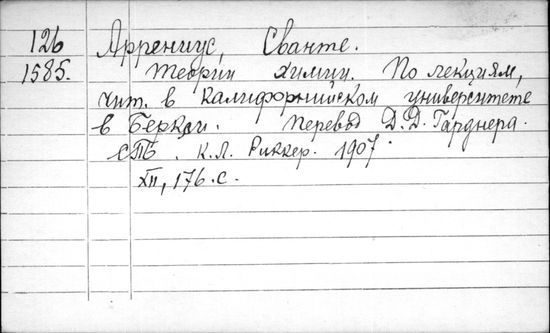 126 Аррениус, Сванте.
1585. Теории химии. По лекциям,
чит. в Калифорнийском университете
в Беркли. Перевод Д.Д. Гарднера.
СПБ. К.Л. Риккер. 1907.
XII, 176 с.